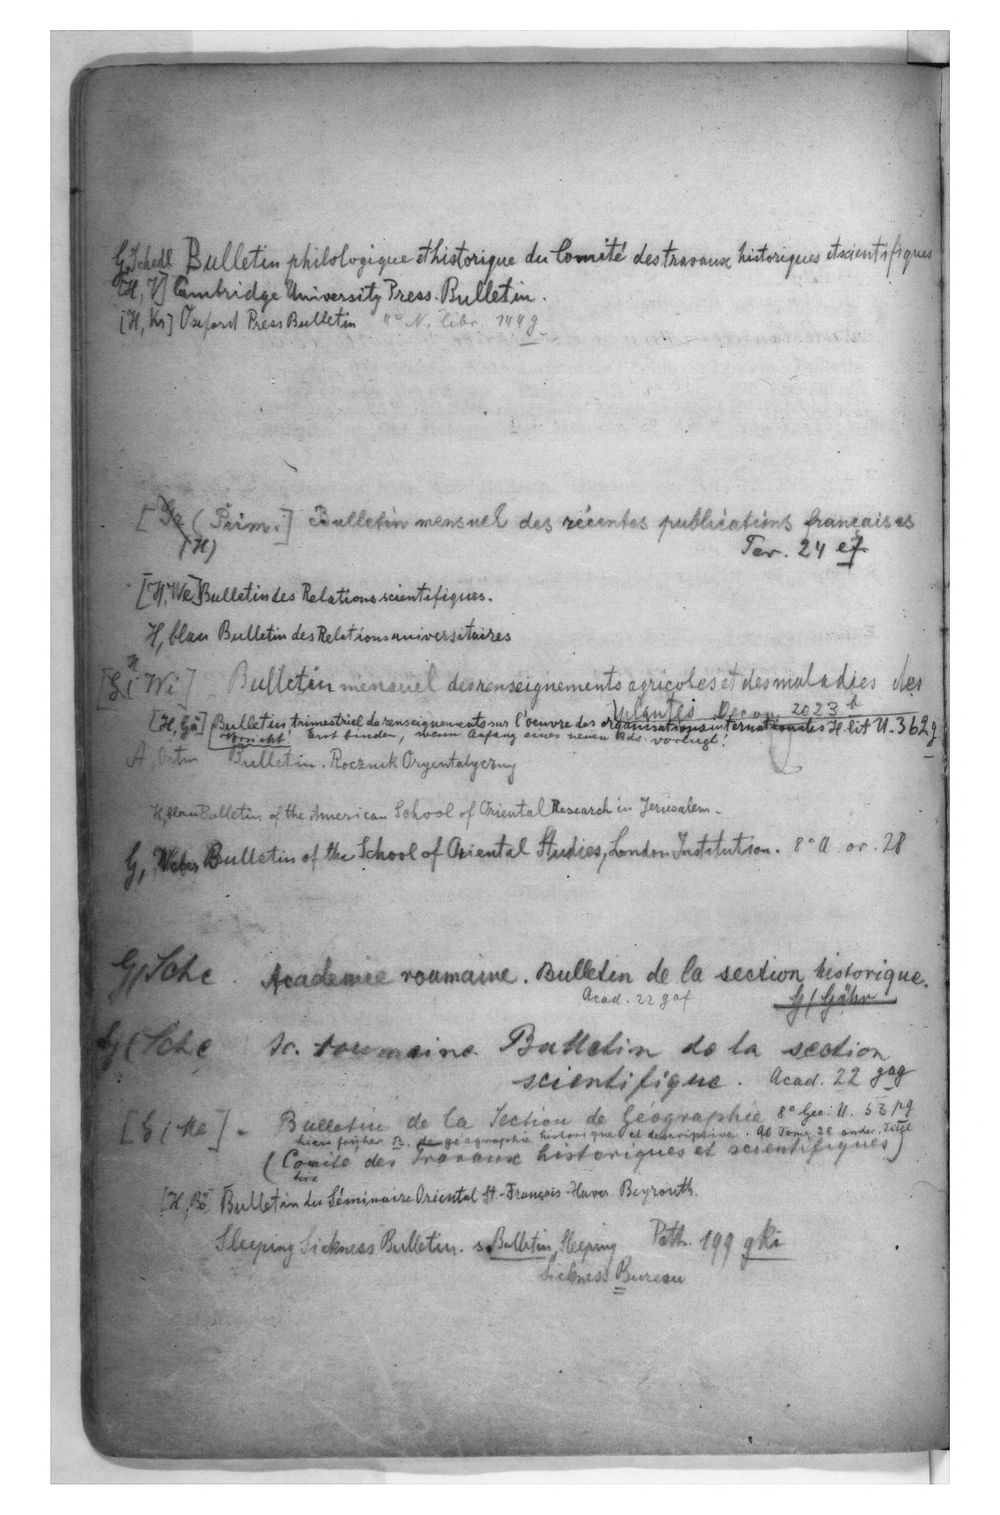 G, Schedl Bulletin philologique et historique du Comité des travaux historiques et scientifiques
[H, V] Cambridge University Press. Bulletin.
[H, Kr] Oxford Press Bulletin 4° N. libr. 144 g
[ (Prim.] Bulletin mensuel des récentes publications françaises
(H) Per. 24 ef
[H, We] Bulletin des Relations scientifiques.
H, blau Bulletin des Relations universitaires
H
[G, Wi] Bulletin mensuel des renseignements agricoles et des maladies des
plantes Oecon. 2023 b
[H, Gä] Bulletin trimestriel de renseignements sur l'oeuvre des organisations internationales H. lit U. 362 g
Vorsicht! Erst binden, wenn Anfang eines neuen Bds. vorliegt!
A, Bulletin. Rocznik Oryentalyczny
H, blau Bulletin of the American School of Oriental Research in Jerusalem.
G, Weber Bulletin of the School of Oriental Studies, London Institution. 8° A. or. 28
G, Sche Academie roumaine. Bulletin de la section historique.
Acad. 22 gaf G, Göhr
G, Sche Ac. roumaine. Bulletin de la section
scientifique. Acad. 22 gag
[G, Me] Bulletin de la Section de Géographie 8° Geo. U. 53 pg
hiess früher B. de géographie historique et descriptive. Ab Tome 28 ander. Titel
(Comité des Travaux historiques et scientifiques)
[H, Bö] Bulletin du Séminaire Oriental St-François-Haver Beyrouth.
Sleeping Sickness Bulletin. s. Bulletin, Sleeping Path. 199 gki
Sickness Bureau